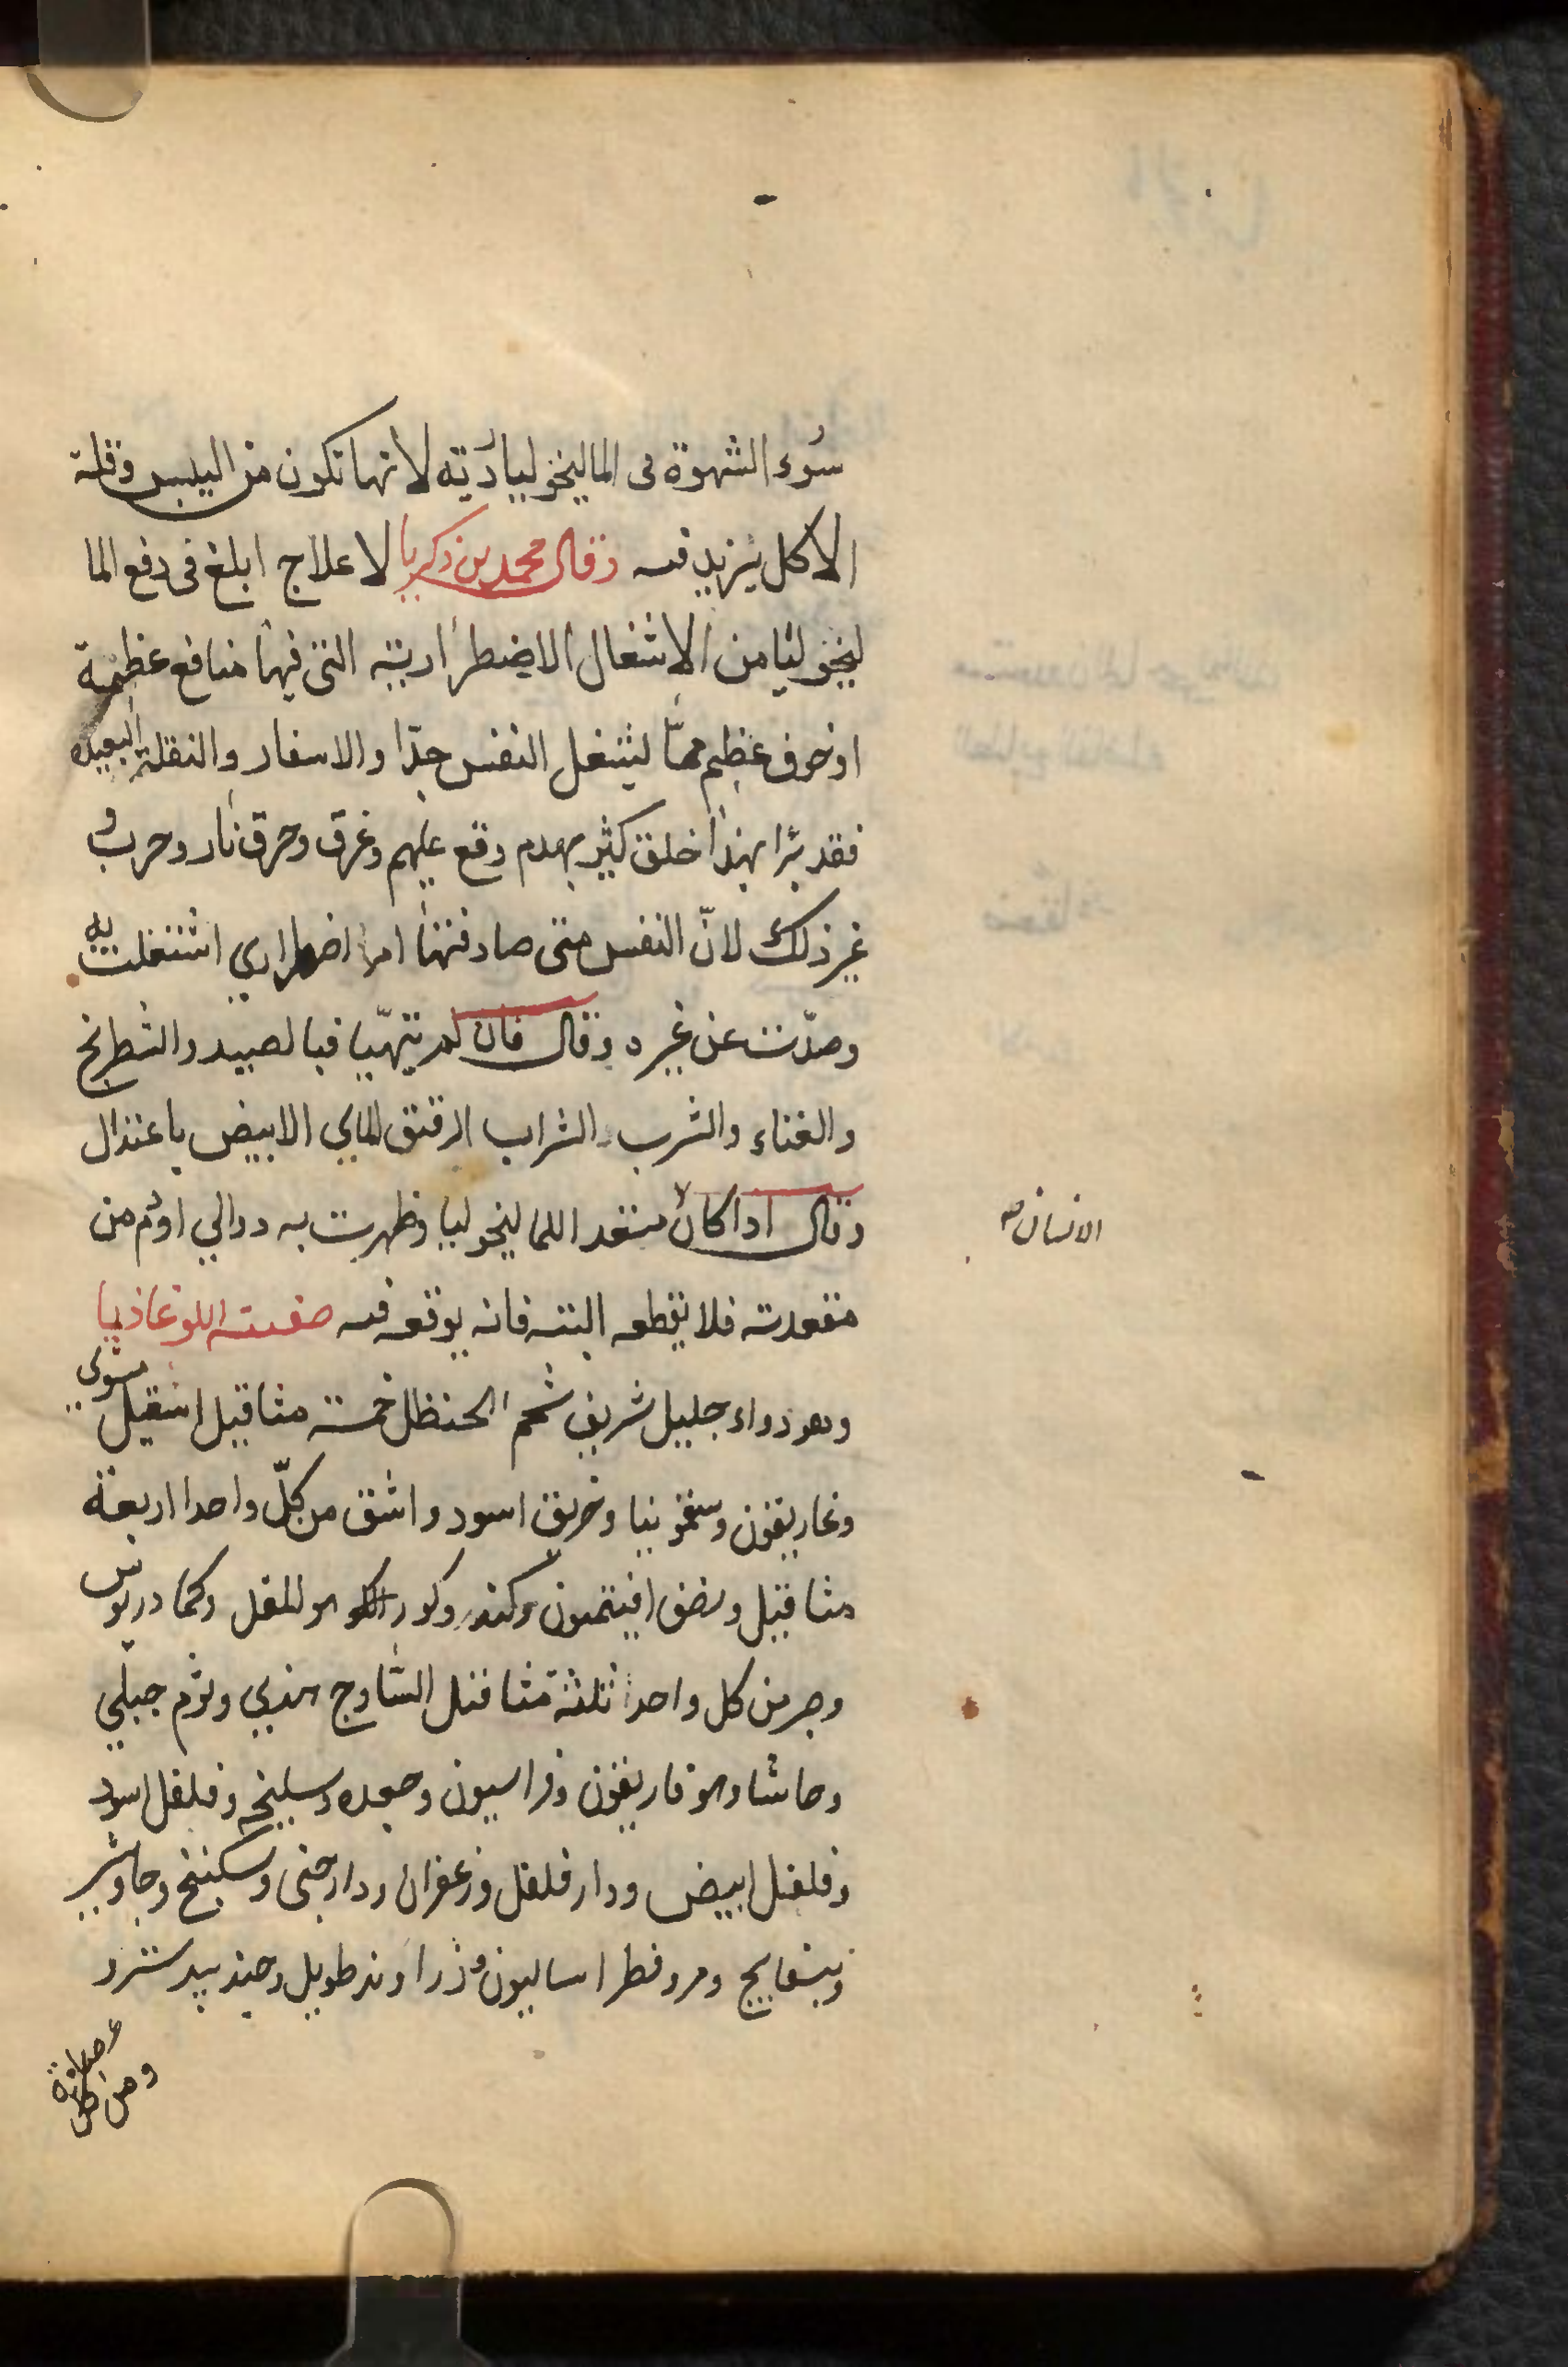 سُوء الشهوة فى الماليخوليا ردّية لأنها تكون من اليبس وقلة
الاكل يزيد فيه وقال محمد بن زكريا لا علاج ابلغ فى دفع الما
ليخوليا من الاشغال الاضطرارية التى فيها منافع عظيمة
او خوف عظيم مما ليشغل النفس جدّا والاسفار والنقلة البعيدة
فقد برُا بهذا خلق كثير بهدم وقع عليهم وغرق وحرق نار وحرب و
غير ذلك لانّ النفس متى صادفتها امرا اضطراري اشتغلت به
وصدّت عن غيره وقال فان لم يتهيّيا فبالصيد والشطرانج
والغناء والشرب والشراب الرقيق المايي الابيض باعتدال
وقال اداكان مستعد اللماليخوليا وظهرت به دوالي اودم من
الانسان صح
مقعدته فلا يقطعه البته فانه يوقعه فيه صفته اللوغاذيا
وهو دواء جليل شريف شحم الحنظل خمسة مثاقيل اشقيل مشوى
وغاريقون وسقمونيا وخربق اسود واشق من كلّ واحدا اربعة
مثاقيل ونصف افيتمون وكندر وكور وهو المقل وكمادريوس
وجر من كل واحدا ثلثة مثاقيل الساوج هندي وثوم جبلي
وحاشا وهوفاريقون وفراسيون وجعده وسليخه وفلفل اسود
وفلفل ابيض ودار فلفل وزعفران ودارجنى وسكبينج وجاوشير
وبسفايج ومر وفطراساليون وزراوند طويل وجند بيدستر د
ومن كل